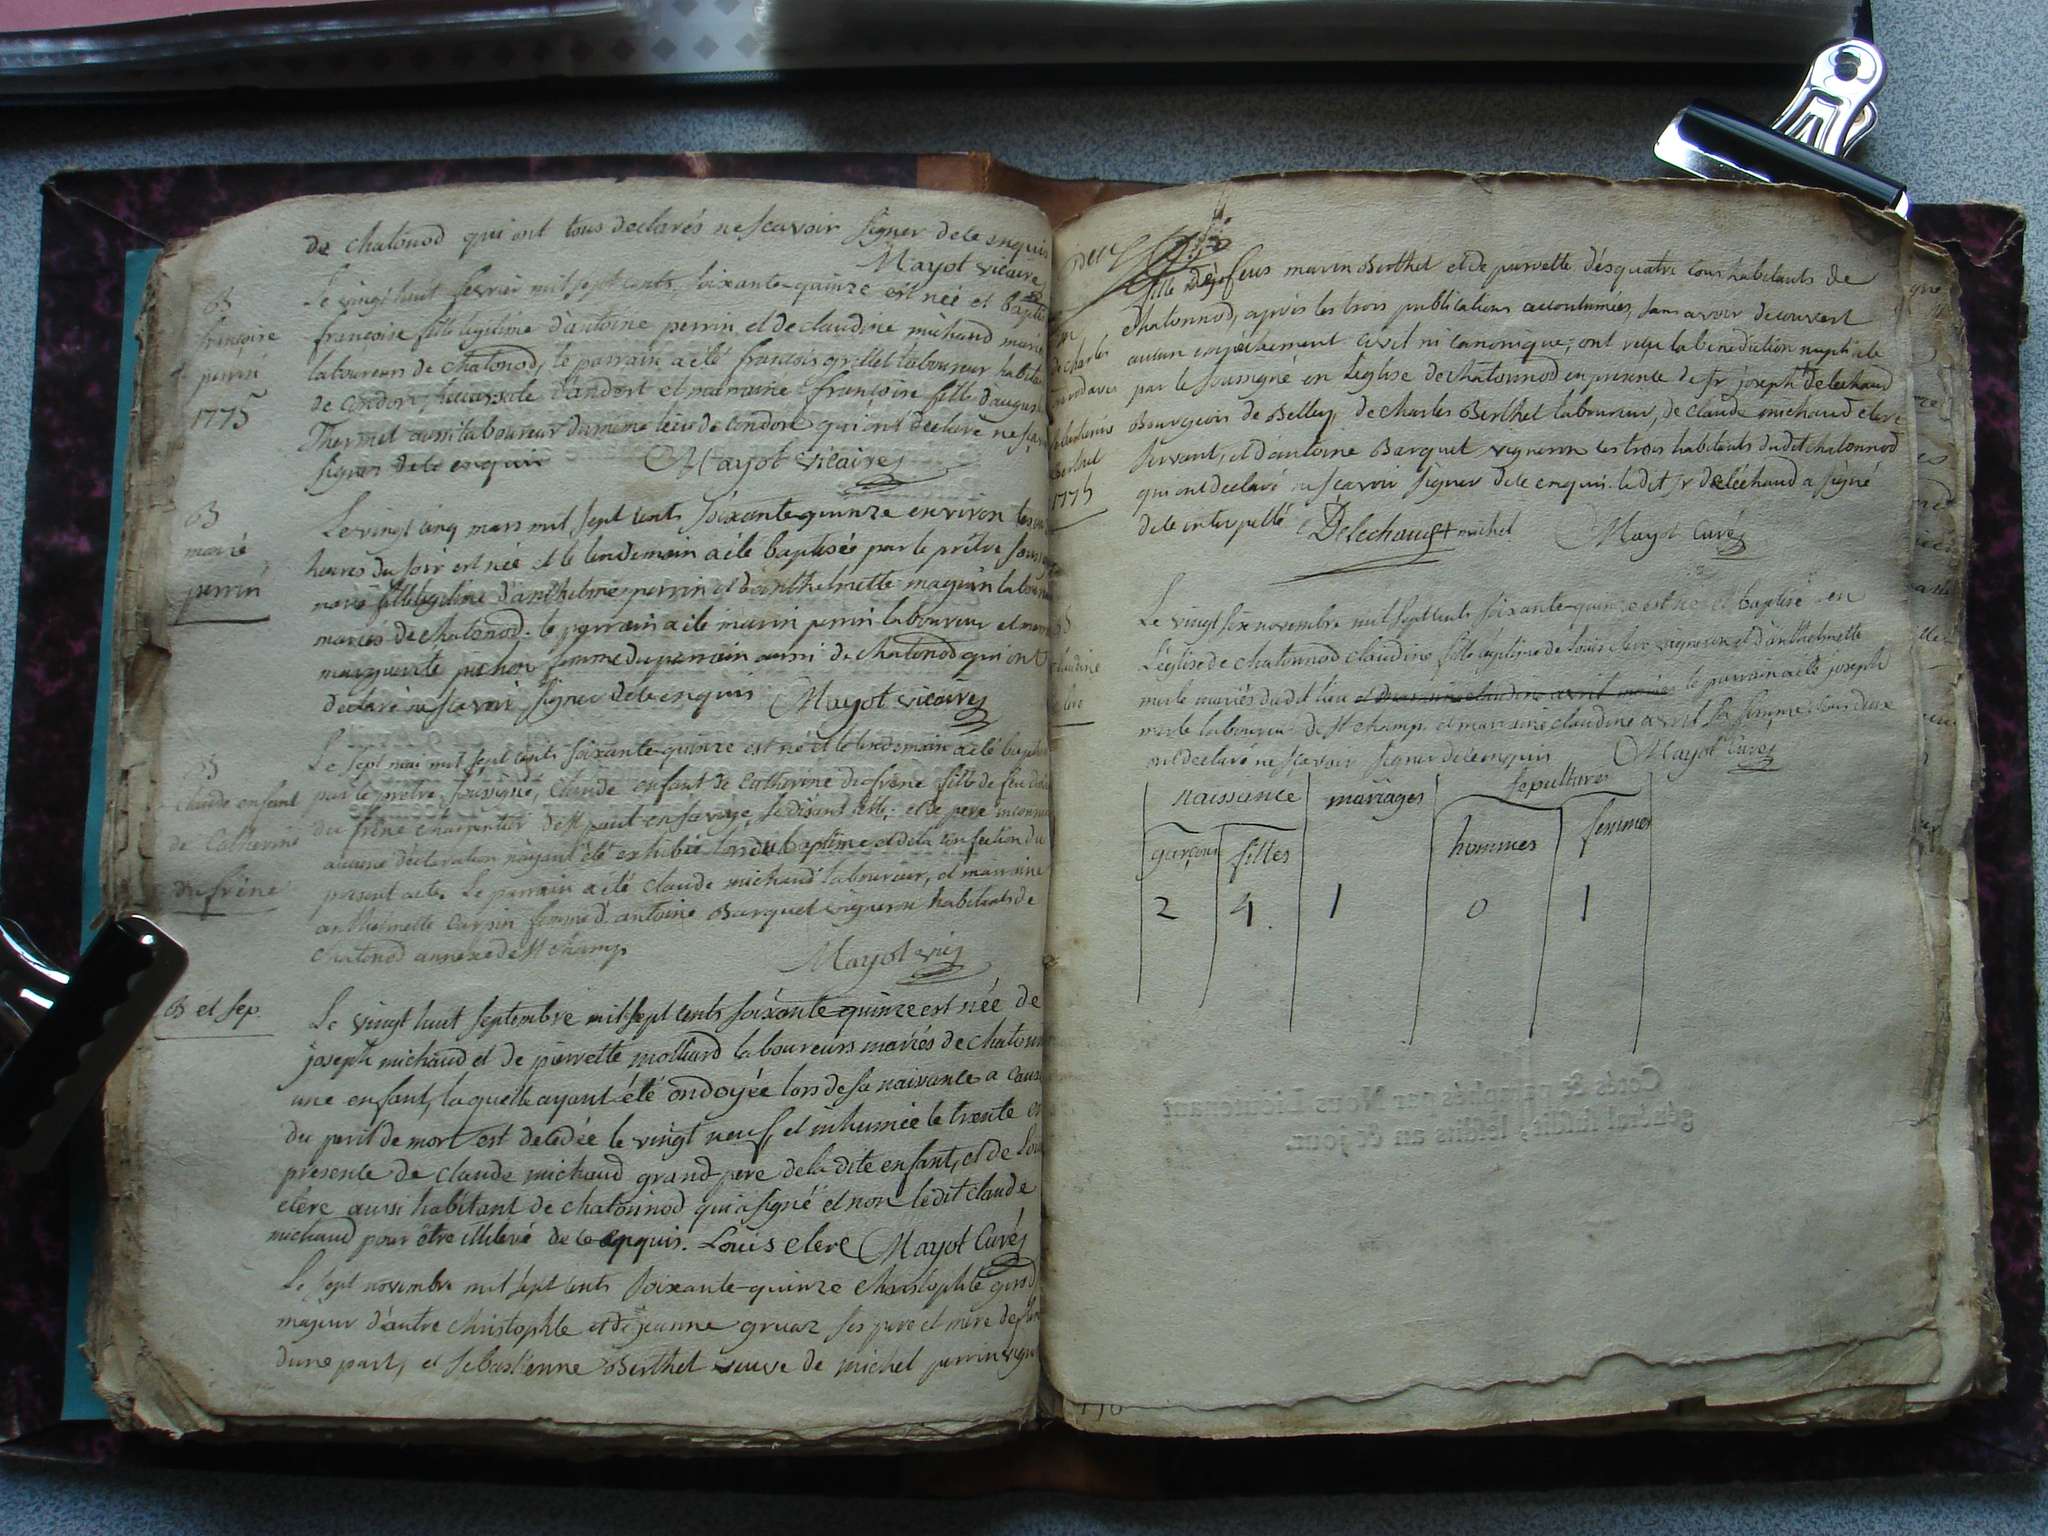 de chatonod qui ont tous declarés ne scavoir signer de ce enquis
Mayot vicaire
B
françoise
perrin
1775
Le vingt huit fevrier mil sept cents soixante-quinze est née et baptisée
françoise fille legitime d'antoine perrin et de claudine michaud mariés
laboureurs de chatonod, le parrain a été françois grillet laboureur habitant
de andort et marraine françoise fille d'august
Thermet aussi laboureur du meme lieu de andort qui ont declaré ne scavoir
signer de ce enquis Mayot vicaire
B
marie
perrin
Le vingt cinq mars mil sept cents soixante quinze environ les
heures du soir est née et le lendemain a été baptisée par le prêtre soussigné
marie fille legitime d'anthelme perrin et d'anthelmette magnin laboureurs
mariés de chatonod. le parrain a été marin perrin laboureur et marraine
marguerite pichon femme du parrain aussi de chatonod qui ont
declaré ne scavoir signer de ce enquis Mayot vicaire
B
claude enfant
de Catherine
du frêne
Le sept mai mil sept cents soixante-quinze est né et le lendemain a été baptisé
par le prêtre soussigné, claude enfant de Catherine du frêne fille de feu
du frêne charpentier de st paul en savoye, se disant telle; et de pere inconnu
aucune déclaration n'ayant été exhibée lors du baptême et de la confection du
present acte. Le parrain a été claude michaud laboureur, et marraine
anthelmette cursin femme d'antoine Barquet vigneron habitants de
chatonod annexe de st champ
Mayot vic
B et sep.
Le vingt huit septembre mil sept cents soixante quinze est née de
joseph michaud et de pierrette molliard laboureurs mariés de chatonnod
une enfant, laquelle ayant été ondoyée lors de sa naissance a cause
du peril de mort est decedée le vingt neuf, et inhumée le trente en
presence de claude michaud grand pere de la dite enfant, et de Louis
clere aussi habitant de chatonnod qui a signé et non ledit claude
michaud pour être illiteré de ce enquis. Louis clere Mayot Curé
Le sept novembre mil sept cents soixante-quinze christophle girod
majeur d'autre christophle et de jeanne gruaz ses pere et mere de
d'une part, et sebastienne Berthet veuve de michel perrin
de charles
sebastienne
Berthet
1775
fille des feus marin Berthet et de pernette désquatre tous habitants de
chatonnod, après les trois publications accoutumées, sans avoir découvert
aucun empêchement civil ni canonique; ont reçu la benediction nuptiale
par le soussigné en l'église de chatonnod en presence de sr joseph delechaud
Bourgeois de Belley, de charles Berthet laboureur, de claude michaud clerc
servant, et d'antoine Barquet vigneron les trois habitants dudit chatonnod
qui ont declaré ne scavoir signer de ce enquis. le dit sr deléchaud a signé
de ce interpellé Delechaud michel Mayot Curé
B
claudine
clere
Le vingt six novembre mil sept cents soixante-quinze est née et baptisée en
L'église de chatonnod claudine fille legitime de Louis clere vigneron et d'anthelmette
merle mariés dudit lieu et marraine claudine avril mariés le parrain a été joseph
merle laboureur de st champ et marraine claudine avril sa femme tous deux
ont declaré ne scavoir signer de ce enquis Mayot Curé
naissance mariages sepultures
garçons filles hommes femmes
2 4 1 0 1